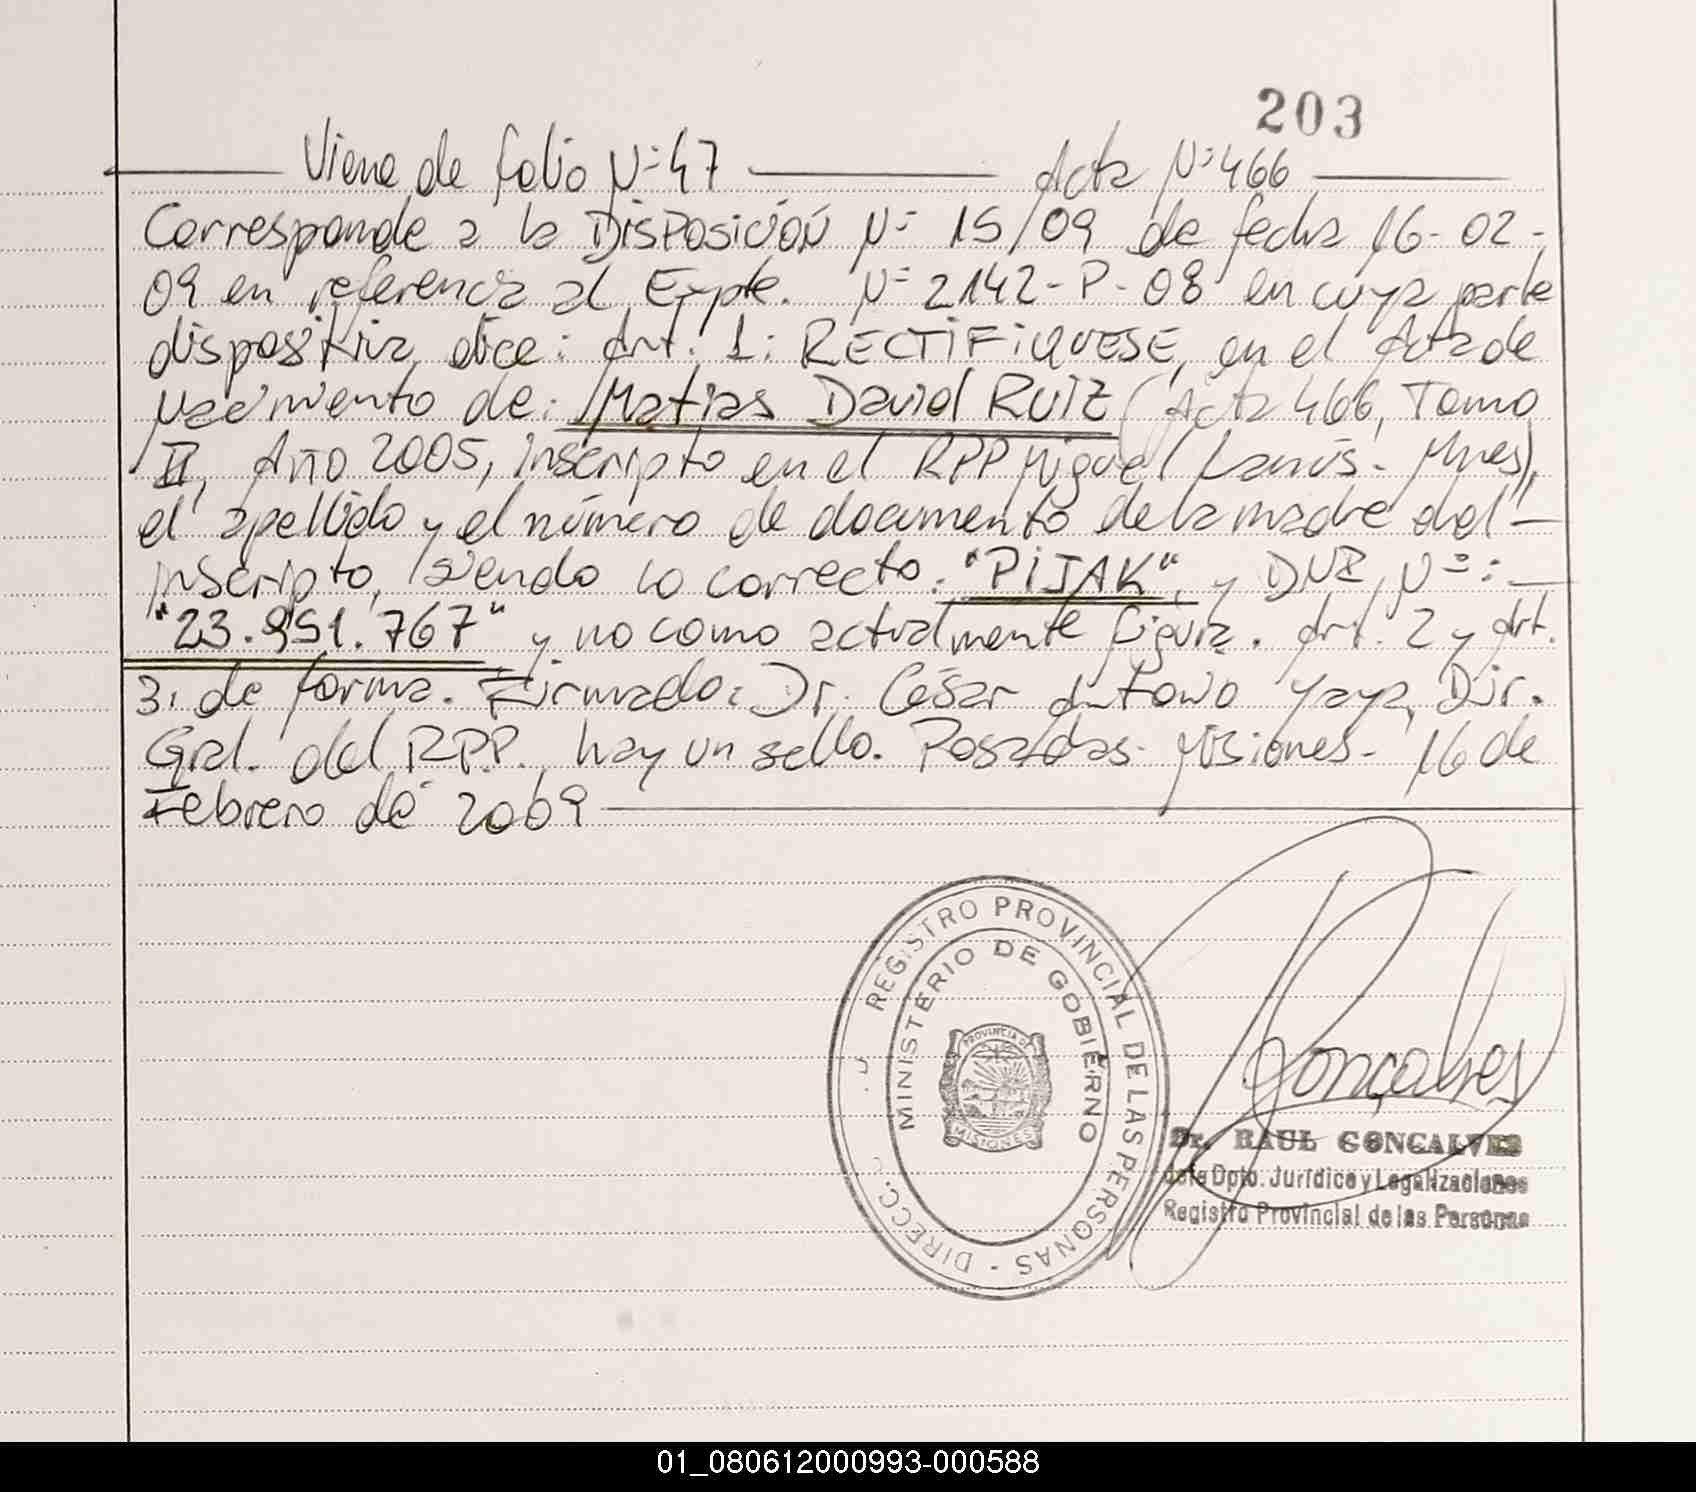 203
Viene de folio Nº 47 Acta Nº 466
Corresponde a la DISPOSICIÓN Nº 15/09 de fecha 16-02-
09 en referencia al Expte. Nº 2142-P-08 en cuya parte
dispositiva dice: Art. 1: RECTIFIQUESE, en el Acta de
Nacimiento de: Matias David RUIZ (Acta 466, Tomo
II, Año 2005, inscripto en el RPP Miguel Lanús - Mnes),
el apellido y el número de documento de la madre del
inscripto, siendo lo correcto: "PIJAK" y DNI Nº:
"23.951.767" y no como actualmente figura. Art. 2 y Art.
3: de forma. Firmado: Dr. César Antonio Yaya, Dir.
Gral. del RPP., hay un sello. Posadas - Misiones - 16 de
Febrero de 2009
REGISTRO PROVINCIAL DE LAS PERSONAS - DIRECC.
MINISTERIO DE GOBIERNO
PROVINCIA DE
MISIONES
Gonçalves
Dr. RAUL GONCALVES
Jefe Dpto. Jurídico y Legalizaciones
Registro Provincial de las Personas
01_080612000993-000588